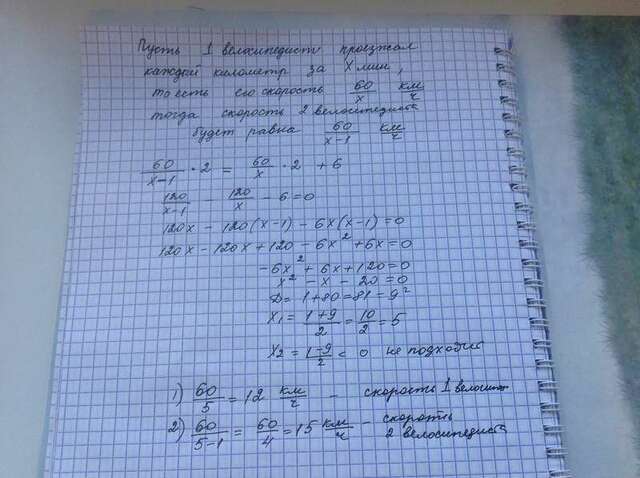 Пусть 1 велосипедист проезжал
каждый километр за x мин,
то есть его скорость 60/x км/ч
тогда скорость 2 велосипедиста
будет равна 60/(x-1) км/ч
60/(x-1) · 2 = 60/x · 2 + 6
120/(x-1) - 120/x - 6 = 0
120x - 120(x-1) - 6x(x-1) = 0
120x - 120x + 120 - 6x² + 6x = 0
-6x² + 6x + 120 = 0
x² - x - 20 = 0
D = 1 + 80 = 81 = 9²
x₁ = (1+9)/2 = 10/2 = 5
x₂ = (1-9)/2 < 0 не подходит
1) 60/5 = 12 км/ч - скорость 1 велосип
2) 60/(5-1) = 60/4 = 15 км/ч - скорость
2 велосипедиста